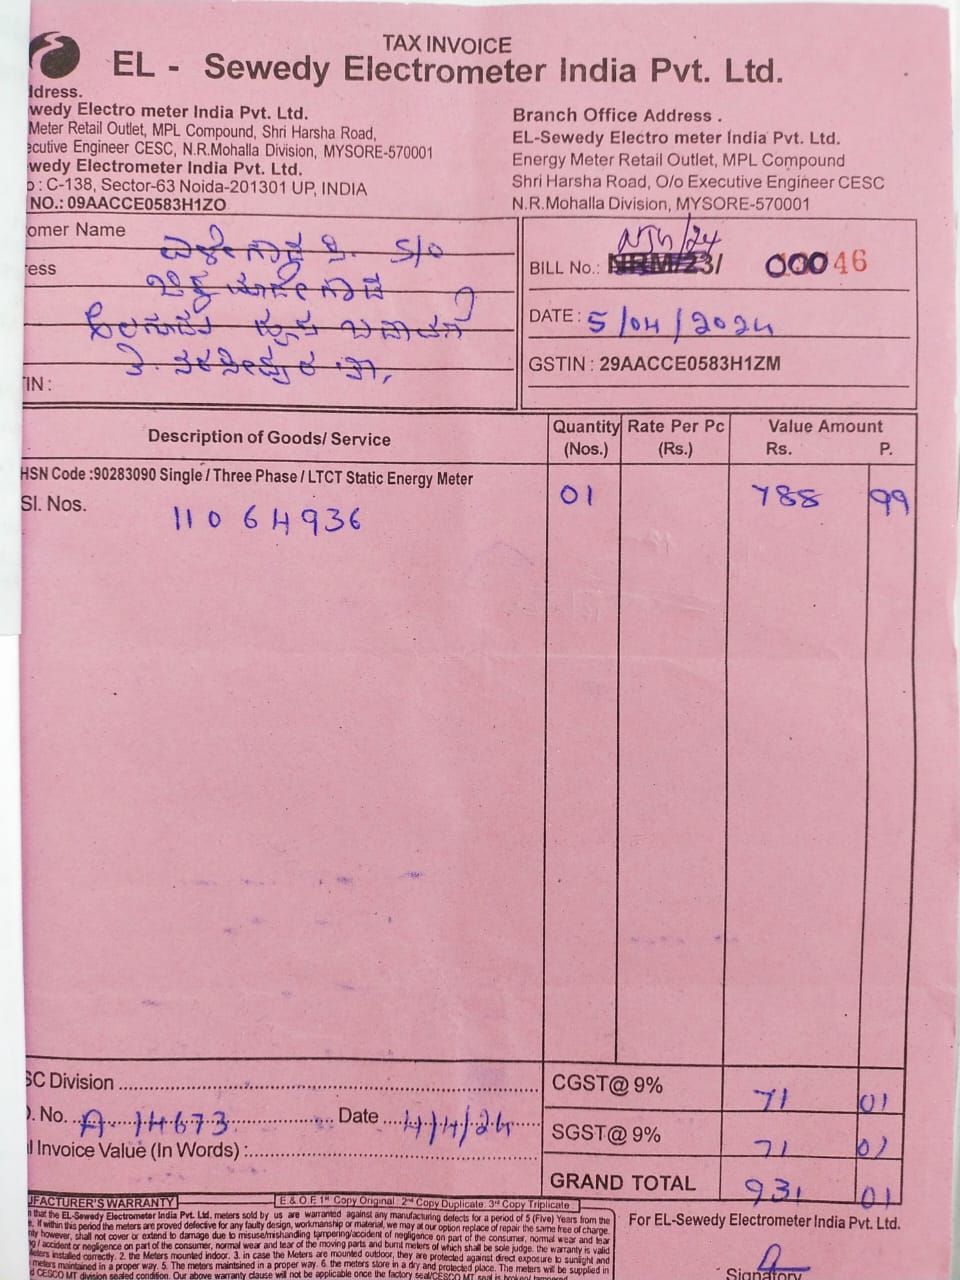 TAX INVOICE
EL - Sewedy Electrometer India Pvt. Ltd.
ddress.
wedy Electro meter India Pvt. Ltd.
Meter Retail Outlet, MPL Compound, Shri Harsha Road,
ecutive Engineer CESC, N.R.Mohalla Division, MYSORE-570001
wedy Electrometer India Pvt. Ltd.
: C-138, Sector-63 Noida-201301 UP, INDIA
NO.: 09AACCE0583H1ZO
Branch Office Address .
EL-Sewedy Electro meter India Pvt. Ltd.
Energy Meter Retail Outlet, MPL Compound
Shri Harsha Road, O/o Executive Engineer CESC
N.R.Mohalla Division, MYSORE-570001
omer Name
S/o
ess
IN :
BILL No.: NRM/23/ 00046
DATE : 5/04/2024
GSTIN : 29AACCE0583H1ZM
Description of Goods/ Service
Quantity (Nos.)
Rate Per Pc (Rs.)
Value Amount
Rs. P.
HSN Code :90283090 Single / Three Phase / LTCT Static Energy Meter
Sl. Nos. 11064936
01 788 99
SC Division
CGST@ 9% 71 01
. No. A-14673 Date 4/4/24
SGST@ 9% 71 01
l Invoice Value (In Words) :
GRAND TOTAL 931 01
UFACTURER'S WARRANTY
E & O.E 1st Copy Original 2nd Copy Duplicate 3rd Copy Triplicate
that the EL-Sewedy Electrometer India Pvt. Ltd. meters sold by us are warranted against any manufacturing defects for a period of 5 (Five) Years from the
If within this period the meters are proved defective for any faulty design, workmanship or material, we may at our option replace of repair the same free of charge.
however, shall not cover or extend to damage due to misuse/mishandling tampering/accident of negligence on part of the consumer, normal wear and tear
/ accident or negligence on part of the consumer, normal wear and tear of the moving parts and burnt meters of which shall be sole judge. the warranty is valid
installed correctly. 2. the Meters mounted indoor. 3. in case the Meters are mounted outdoor, they are protected against direct exposure to sunlight and
meters maintained in a proper way. 5. The meters maintsined in a proper way. 6. the meters store in a dry and protected place. The meters will be supplied in
CESCO MT division sealed condition. Our above warranty clause will not be applicable once the factory seal/CESCO MT seal is
For EL-Sewedy Electrometer India Pvt. Ltd.
Signatory